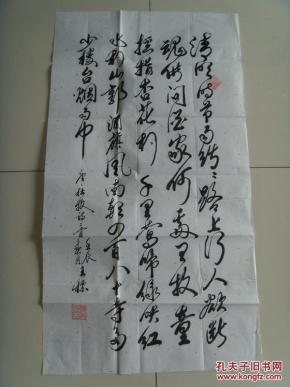 清明时节雨纷纷路上行人欲断
魂借问酒家何处有牧童
遥指杏花村 千里莺啼绿映红
水村山郭酒旗风南朝四百八十寺多
少楼台烟雨中
唐杜牧诗二首 壬辰
孔夫子旧书网